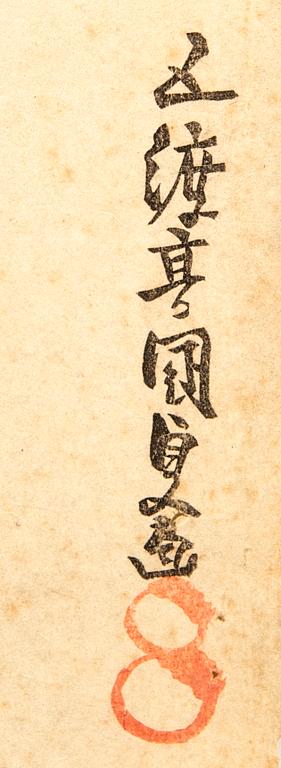 五渡亭國貞画